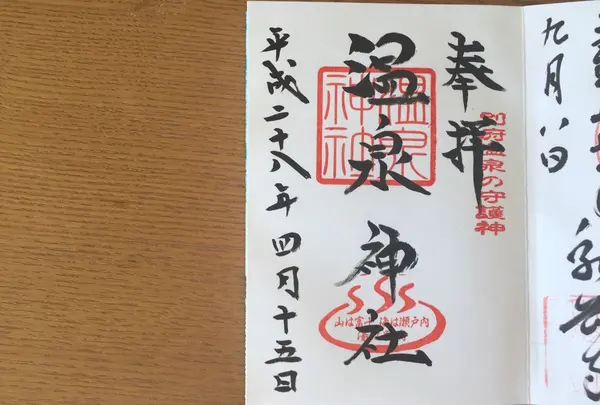 九月八日
奉拝
別府温泉の守護神
温泉神社
温泉
神社
山は富士 海は瀬戸内
平成二十八年四月十五日